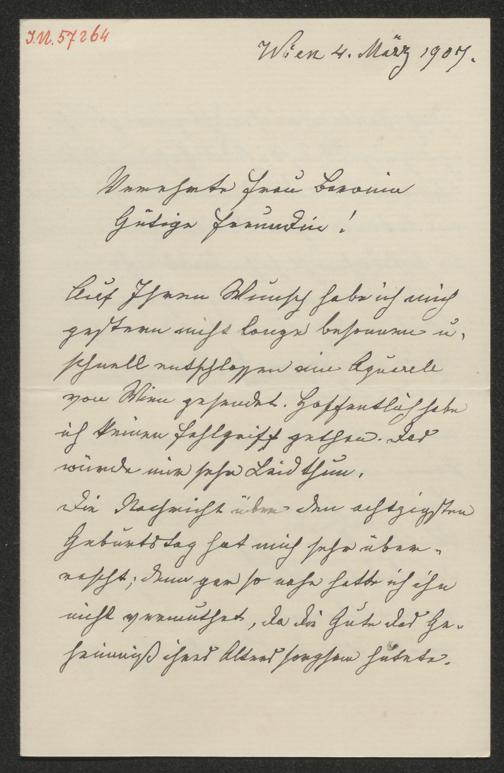 I.N. 57264
Wien 4. März 1907.
Verehrte Frau Baronin
Gütige Freundin!
Auf Ihren Wunsch habe ich mich
gestern nicht lange besonnen u.
schnell entschlossen ein Aquarele
von Wien gesendet. Hoffentlich habe
ich keinen Fehlgriff gethan. Das
würde mir sehr Leid thun.
Die Nachricht über den achtzigsten
Geburtstag hat mich sehr über-
rascht; denn gar so nahe hatte ich ihn
nicht vermuthet, da die Gute das Ge-
heimniß ihres Alters sorgsam hütete.